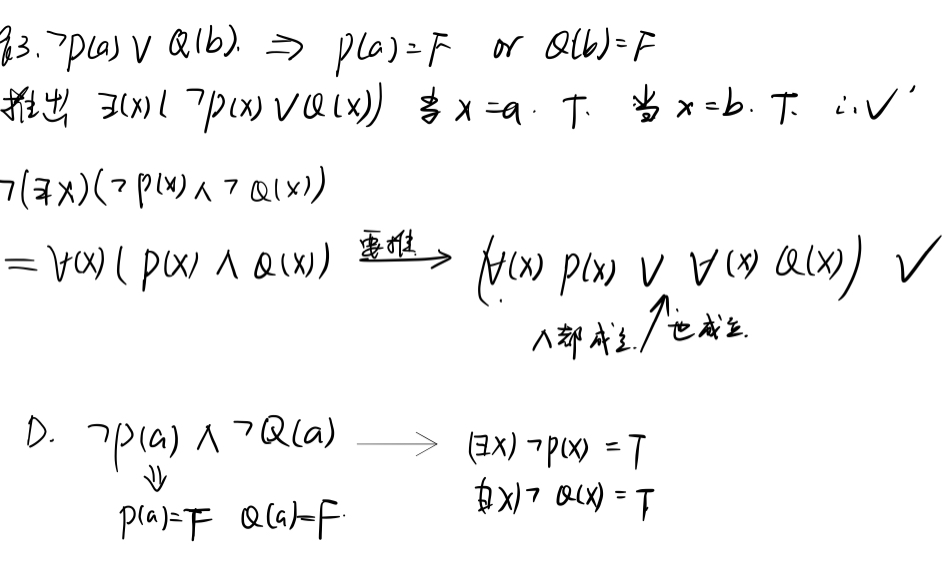 3. ¬p(a) ∨ Q(b). ⇒ p(a)=F or Q(b)=F
推出 ∃(x)(¬p(x) ∨ Q(x)) 当 x=a. T. 当 x=b. T. ∴ ✓
¬(∃x)(¬p(x) ∧ ¬Q(x))
= ∀(x)(p(x) ∧ Q(x)) 要推→ (∀(x) p(x) ∨ ∀(x) Q(x)) ✓
∧都成立. 也成立.
D. ¬p(a) ∧ ¬Q(a) → (∃x)¬p(x) = T
⇓ (∃x)¬Q(x) = T
p(a)=F Q(a)=F.